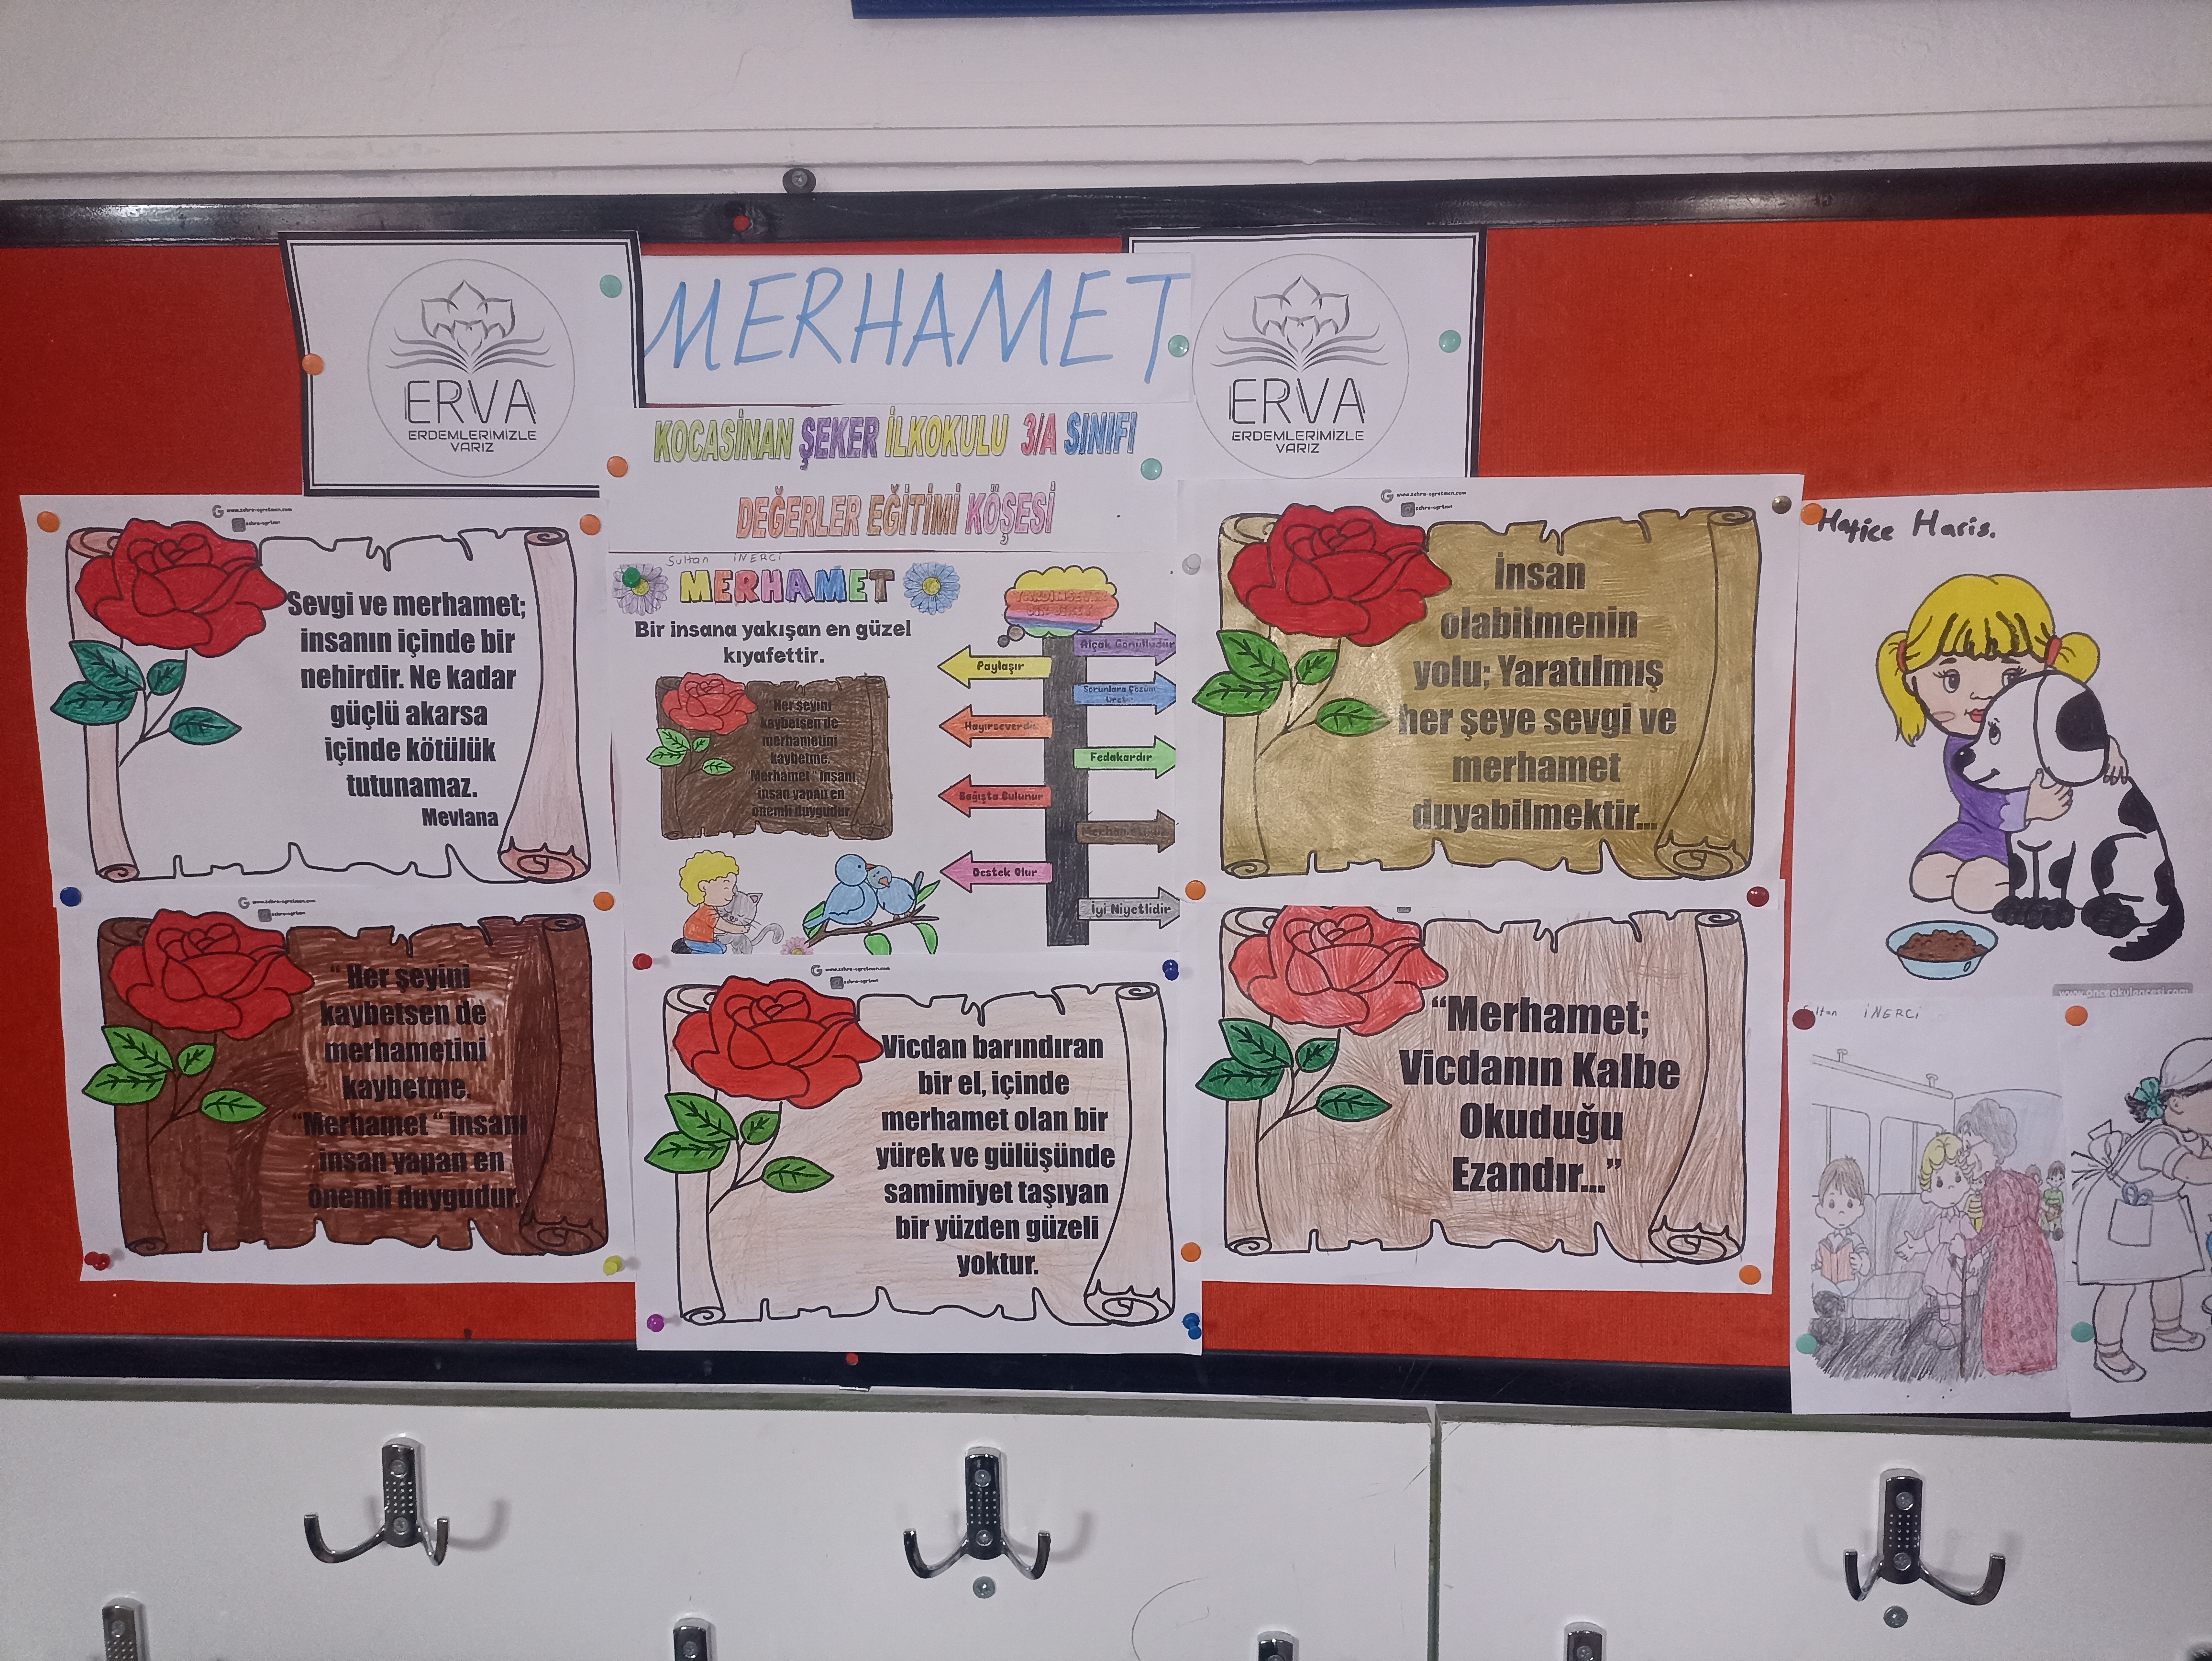 ERVA
ERDEMLERİMİZLE
VARIZ
MERHAMET
ERVA
ERDEMLERİMİZLE
VARIZ
KOCASİNAN ŞEKER İLKOKULU 3/A SINIFI
DEĞERLER EĞİTİMİ KÖŞESİ
www.zehra-ogretmen.com
Sevgi ve merhamet;
insanın içinde bir
nehirdir. Ne kadar
güçlü akarsa
içinde kötülük
tutunamaz.
Mevlana
www.zehra-ogretmen.com
“ Her şeyini
kaybetsen de
merhametini
kaybetme.
“Merhamet “ insanı
insan yapan en
önemli duygudur.
Sultan İNERCİ
MERHAMET
Bir insana yakışan en güzel
kıyafettir.
Her şeyini
kaybetsen de
merhametini
kaybetme.
“Merhamet “ insanı
insan yapan en
önemli duygudur.
Alçak Gönüllüdür
Paylaşır
Sorunlara Çözüm
Üretir
Hayırseverdir
Fedakardır
Bağışta Bulunur
Merhametlidir
Destek Olur
İyi Niyetlidir
www.zehra-ogretmen.com
Vicdan barındıran
bir el, içinde
merhamet olan bir
yürek ve gülüşünde
samimiyet taşıyan
bir yüzden güzeli
yoktur.
www.zehra-ogretmen.com
İnsan
olabilmenin
yolu; Yaratılmış
her şeye sevgi ve
merhamet
duyabilmektir...
“Merhamet;
Vicdanın Kalbe
Okuduğu
Ezandır...”
Hatice Haris.
www.onceokuloncesi.com
Sultan İNERCİ